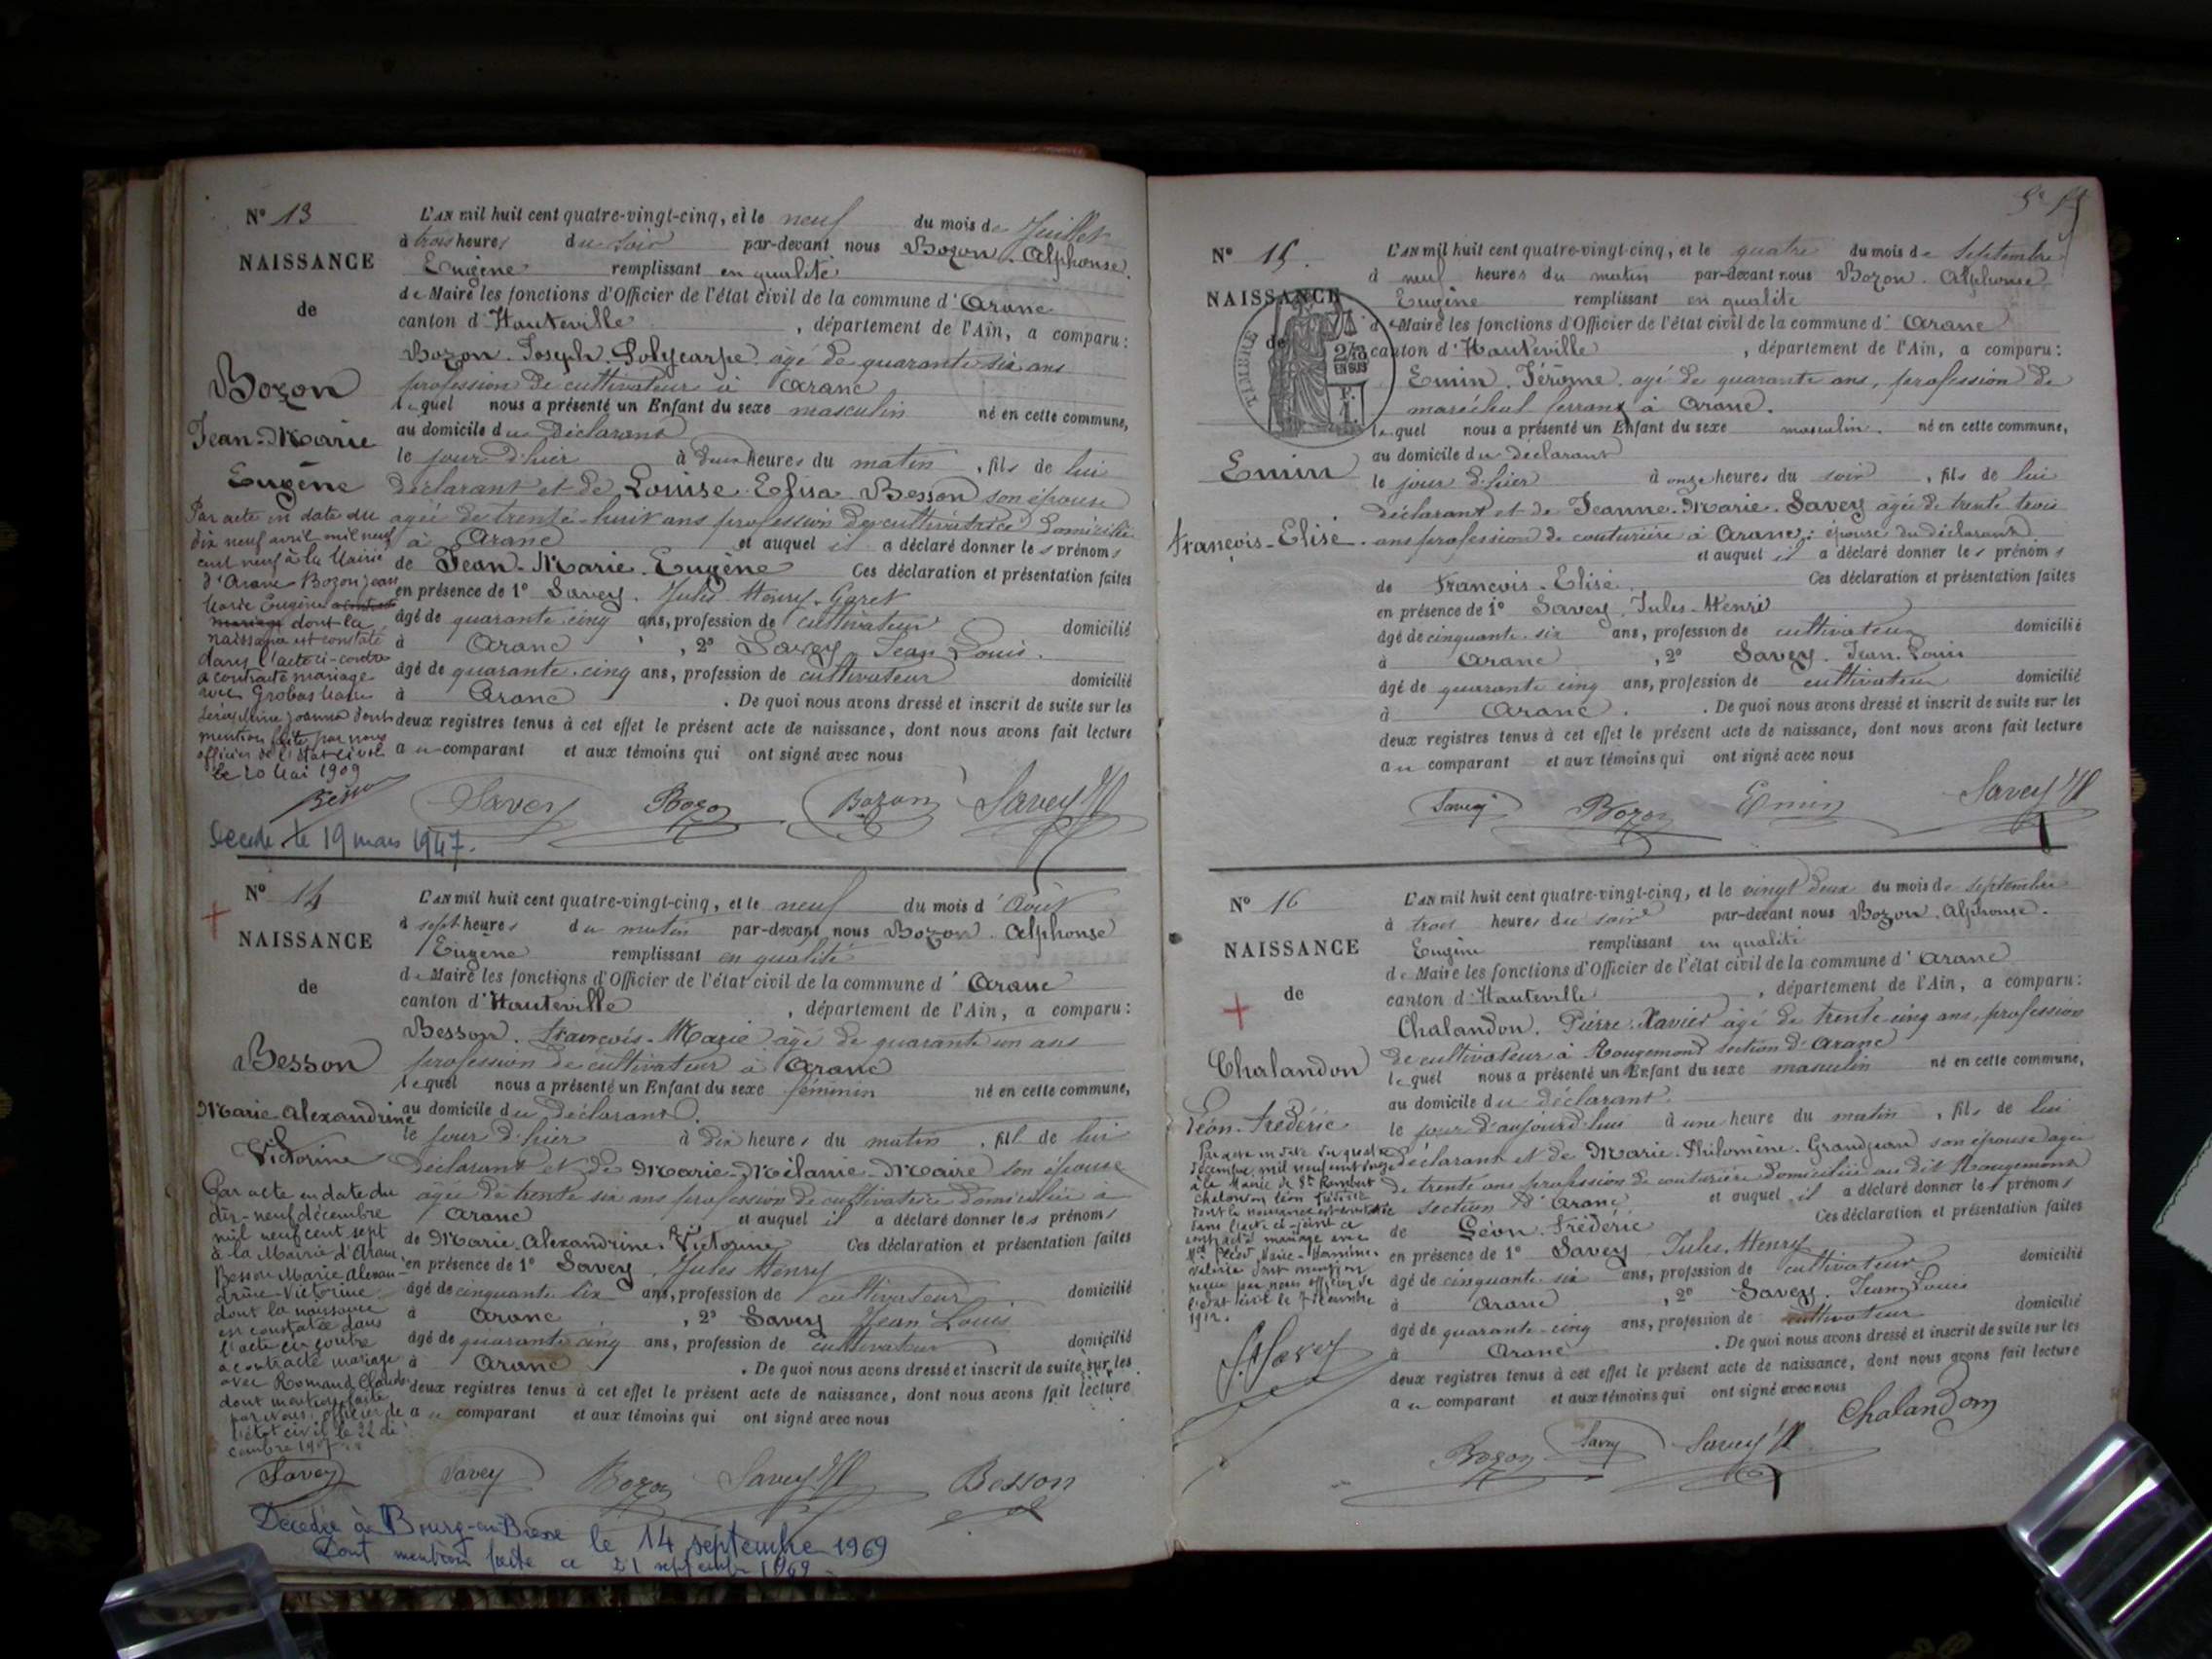 N° 13
NAISSANCE
de
Bozon
Jean-Marie
Eugène
Par acte en date du
dix neuf avril mil neuf
cent neuf à la Mairie
d'Aranc Bozon Jean
Marie Eugène
dont la
naissance est constatée
dans l'acte ci-contre
a contracté mariage
avec Grobas Marie
Séraphine Joanna dont
mention faite par nous
officier de l'état civil
le 20 Mai 1909
L'AN mil huit cent quatre-vingt-cinq, et le neuf du mois de Juillet
à trois heures du soir par-devant nous Bozon. Alphonse.
Eugène remplissant en qualité
de Maire les fonctions d'Officier de l'état civil de la commune d'Aranc
canton d'Hauteville, département de l'Ain, a comparu:
Bozon. Joseph. Polycarpe âgé de quarante six ans
profession de cultivateur à Aranc
lequel nous a présenté un Enfant du sexe masculin né en cette commune,
au domicile du déclarant
le jour d'hier à deux heures du matin, fils de lui
déclarant et de Louise Elisa Besson son épouse
agée de trente-huit ans profession de cultivatrice domiciliée
à Aranc et auquel il a déclaré donner les prénoms
de Jean-Marie-Eugène Ces déclaration et présentation faites
en présence de 1° Savey. Jules Henry
âgé de quarante cinq ans, profession de cultivateur domicilié
à Aranc, 2° Savey Jean Louis.
âgé de quarante-cinq ans, profession de cultivateur domicilié
à Aranc. De quoi nous avons dressé et inscrit de suite sur les
deux registres tenus à cet effet le présent acte de naissance, dont nous avons fait lecture
au comparant et aux témoins qui ont signé avec nous
Savey Bozon Bozon Savey JH
Décédé le 19 mars 1947.
N° 14
NAISSANCE
de
Besson
Marie-Alexandrine
Victorine
Par acte en date du
dix-neuf décembre
mil neuf cent sept
à la Mairie d'Aranc
Besson Marie Alexan-
drine-Victorine
dont la naissance
est constatée dans
l'acte ci-contre
a contracté mariage
avec Romand Claude
dont mention faite
par Nous, officier de
l'état civil le 22 dé-
cembre 1907
L'AN mil huit cent quatre-vingt-cinq, et le neuf du mois d'Août
à sept heures du matin par-devant nous Bozon. Alphonse
Eugène remplissant en qualité
de Maire les fonctions d'Officier de l'état civil de la commune d'Aranc
canton d'Hauteville, département de l'Ain, a comparu:
Besson. François-Marie âgé de quarante un ans
profession de cultivateur à Aranc
lequel nous a présenté un Enfant du sexe féminin né en cette commune,
au domicile du déclarant.
le jour d'hier à dix heures du matin, fil de lui
déclarant et de Marie-Mélanie-Maire son épouse
agée de trente six ans profession de cultivatrice domiciliée à
Aranc et auquel il a déclaré donner les prénoms
de Marie-Alexandrine-Victorine Ces déclaration et présentation faites
en présence de 1° Savey. Jules Henry
âgé de cinquante six ans, profession de cultivateur domicilié
à Aranc, 2° Savey Jean Louis
âgé de quarante cinq ans, profession de cultivateur domicilié
à Aranc. De quoi nous avons dressé et inscrit de suite sur les
deux registres tenus à cet effet le présent acte de naissance, dont nous avons fait lecture
au comparant et aux témoins qui ont signé avec nous
Savey Savey Bozon Savey JH Besson
Décédée à Bourg-en-Bresse le 14 septembre 1969
Dont mention faite ce 21 septembre 1969.
N° 15.
NAISSANCE
de
TIMBRE
2/10
EN SUS
Emin
François-Elisé.
L'AN mil huit cent quatre-vingt-cinq, et le quatre du mois de Septembre
à neuf heures du matin par-devant nous Bozon. Alphonse
Eugène remplissant en qualité
de Maire les fonctions d'Officier de l'état civil de la commune d'Aranc
canton d'Hauteville, département de l'Ain, a comparu:
Emin. Jérôme. agé de quarante ans, profession de
maréchal ferrant à Aranc.
lequel nous a présenté un Enfant du sexe masculin. né en cette commune,
au domicile du déclarant
le jour d'hier à onze heures du soir, fils de lui
déclarant et de Jeanne-Marie. Savey agée de trente trois
ans profession de couturière à Aranc; épouse du déclarant
et auquel il a déclaré donner les prénoms
de François-Elisé. Ces déclaration et présentation faites
en présence de 1° Savey. Jules-Henri
âgé de cinquante-six ans, profession de cultivateur domicilié
à Aranc, 2° Savey. Jean. Louis
âgé de quarante cinq ans, profession de cultivateur domicilié
à Aranc. De quoi nous avons dressé et inscrit de suite sur les
deux registres tenus à cet effet le présent acte de naissance, dont nous avons fait lecture
au comparant et aux témoins qui ont signé avec nous
Savey Bozon Emin Savey JH
N° 16
NAISSANCE
de
Chalandon
Léon-Frédéric
Par acte en date du quatre
décembre mil neuf cent douze
à la Mairie de St Rambert
Chalandon Léon Frédéric
dont la naissance est constatée
dans l'acte ci-joint a
contracté mariage avec
Valérie dont mention
par nous officier de
l'état civil le 7 décembre
1912.
L'AN mil huit cent quatre-vingt-cinq, et le vingt deux du mois de septembre
à trois heures du soir par-devant nous Bozon. Alphonse.
Eugène remplissant en qualité
de Maire les fonctions d'Officier de l'état civil de la commune d'Aranc
canton d'Hauteville, département de l'Ain, a comparu:
Chalandon. Pierre. Xavier agé de trente-cinq ans, profession
de cultivateur à Rougemont section d'Aranc
lequel nous a présenté un Enfant du sexe masculin né en cette commune,
au domicile du déclarant.
le jour d'aujourd'hui à une heure du matin, fils de lui
déclarant et de Marie-Philomène. Grandjean son épouse agée
de trente ans profession de couturière domiciliée au dit Rougemont
section d'Aranc et auquel il a déclaré donner les prénoms
de Léon. Frédéric Ces déclaration et présentation faites
en présence de 1° Savey. Jules. Henry
âgé de cinquante six ans, profession de cultivateur domicilié
à Aranc, 2° Savey. Jean-Louis
âgé de quarante-cinq ans, profession de cultivateur domicilié
à Aranc. De quoi nous avons dressé et inscrit de suite sur les
deux registres tenus à cet effet le présent acte de naissance, dont nous avons fait lecture
au comparant et aux témoins qui ont signé avec nous
Chalandon
Bozon Savey Savey JH